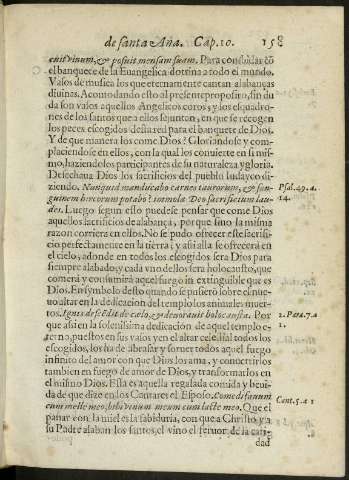 de santa Aña. Cap. 10. 158
cuit vinum, & posuit mensam suam. Para consolar cõ
el banquete de la Euangelica dotrina a todo el mundo.
Vasos de musica los que eternamente cantan alabanças
diuinas. Acomodando esto al presente proposito, sin du
da son vasos aquellos Angelicos coros, y los esquadro-
nes de los santos que a ellos se juntan, en que se recogen
los peces escogidos desta red para el banquete de Dios.
Y de que manera los come Dios? Gloriandose y com-
placiendose en ellos, con la qual los conuierte en si mis
mo, haziendolos participantes de su naturaleza y gloria.
Desechaua Dios los sacrificios del pueblo Iudayco di-
ziendo. Nunquid manducabo carnes taurorum, & san-
guinem hircorum potabo? immola Deo sacrificium lau-
des. Luego segun esto puedese pensar que come Dios
aquellos sacrificios de alabança, porque sino la misma
razon corriera en ellos. No se pudo ofrecer este sacrifi-
cio perfectamente en la tierra, y asi alla se ofrecera en
el cielo, adonde en todos los escogidos sera Dios para
siempre alabado, y cada vno dellos sera holocausto, que
comera y consumirà aquel fuego in extinguible que es
Dios. En symbolo desto quando se pusiero sobre el nue-
uo altar en la dedicacion del templo los animales muer-
tos. Ignis descẽdit de cœlo, & deuorauit holocausta. Por
que asi en la solenissima dedicacion de aquel templo e-
terno, puestos en sus vasos y en el altar celestial todos los
escogidos, los ha de abrasar y soruer todos aquel fuego
infinito del amor con que Dios los ama, y conuertirlos
tambien en fuego de amor de Dios, y transformarlos en
el mismo Dios. Esta es aquella regalada comida y beui-
da de que dize en los Cantares el Esposo. Comedi fauum
cum melle meo, bibi vinum meum cum lacte meo. Que el
panar con la miel es la sabiduria, con que a Christo y a
su Padre alaban los santos, el vino el feruor de la cari-
dad
Psal. 49. a.
14.
2. Para. 7. a
1.
Cant. 5. a 1